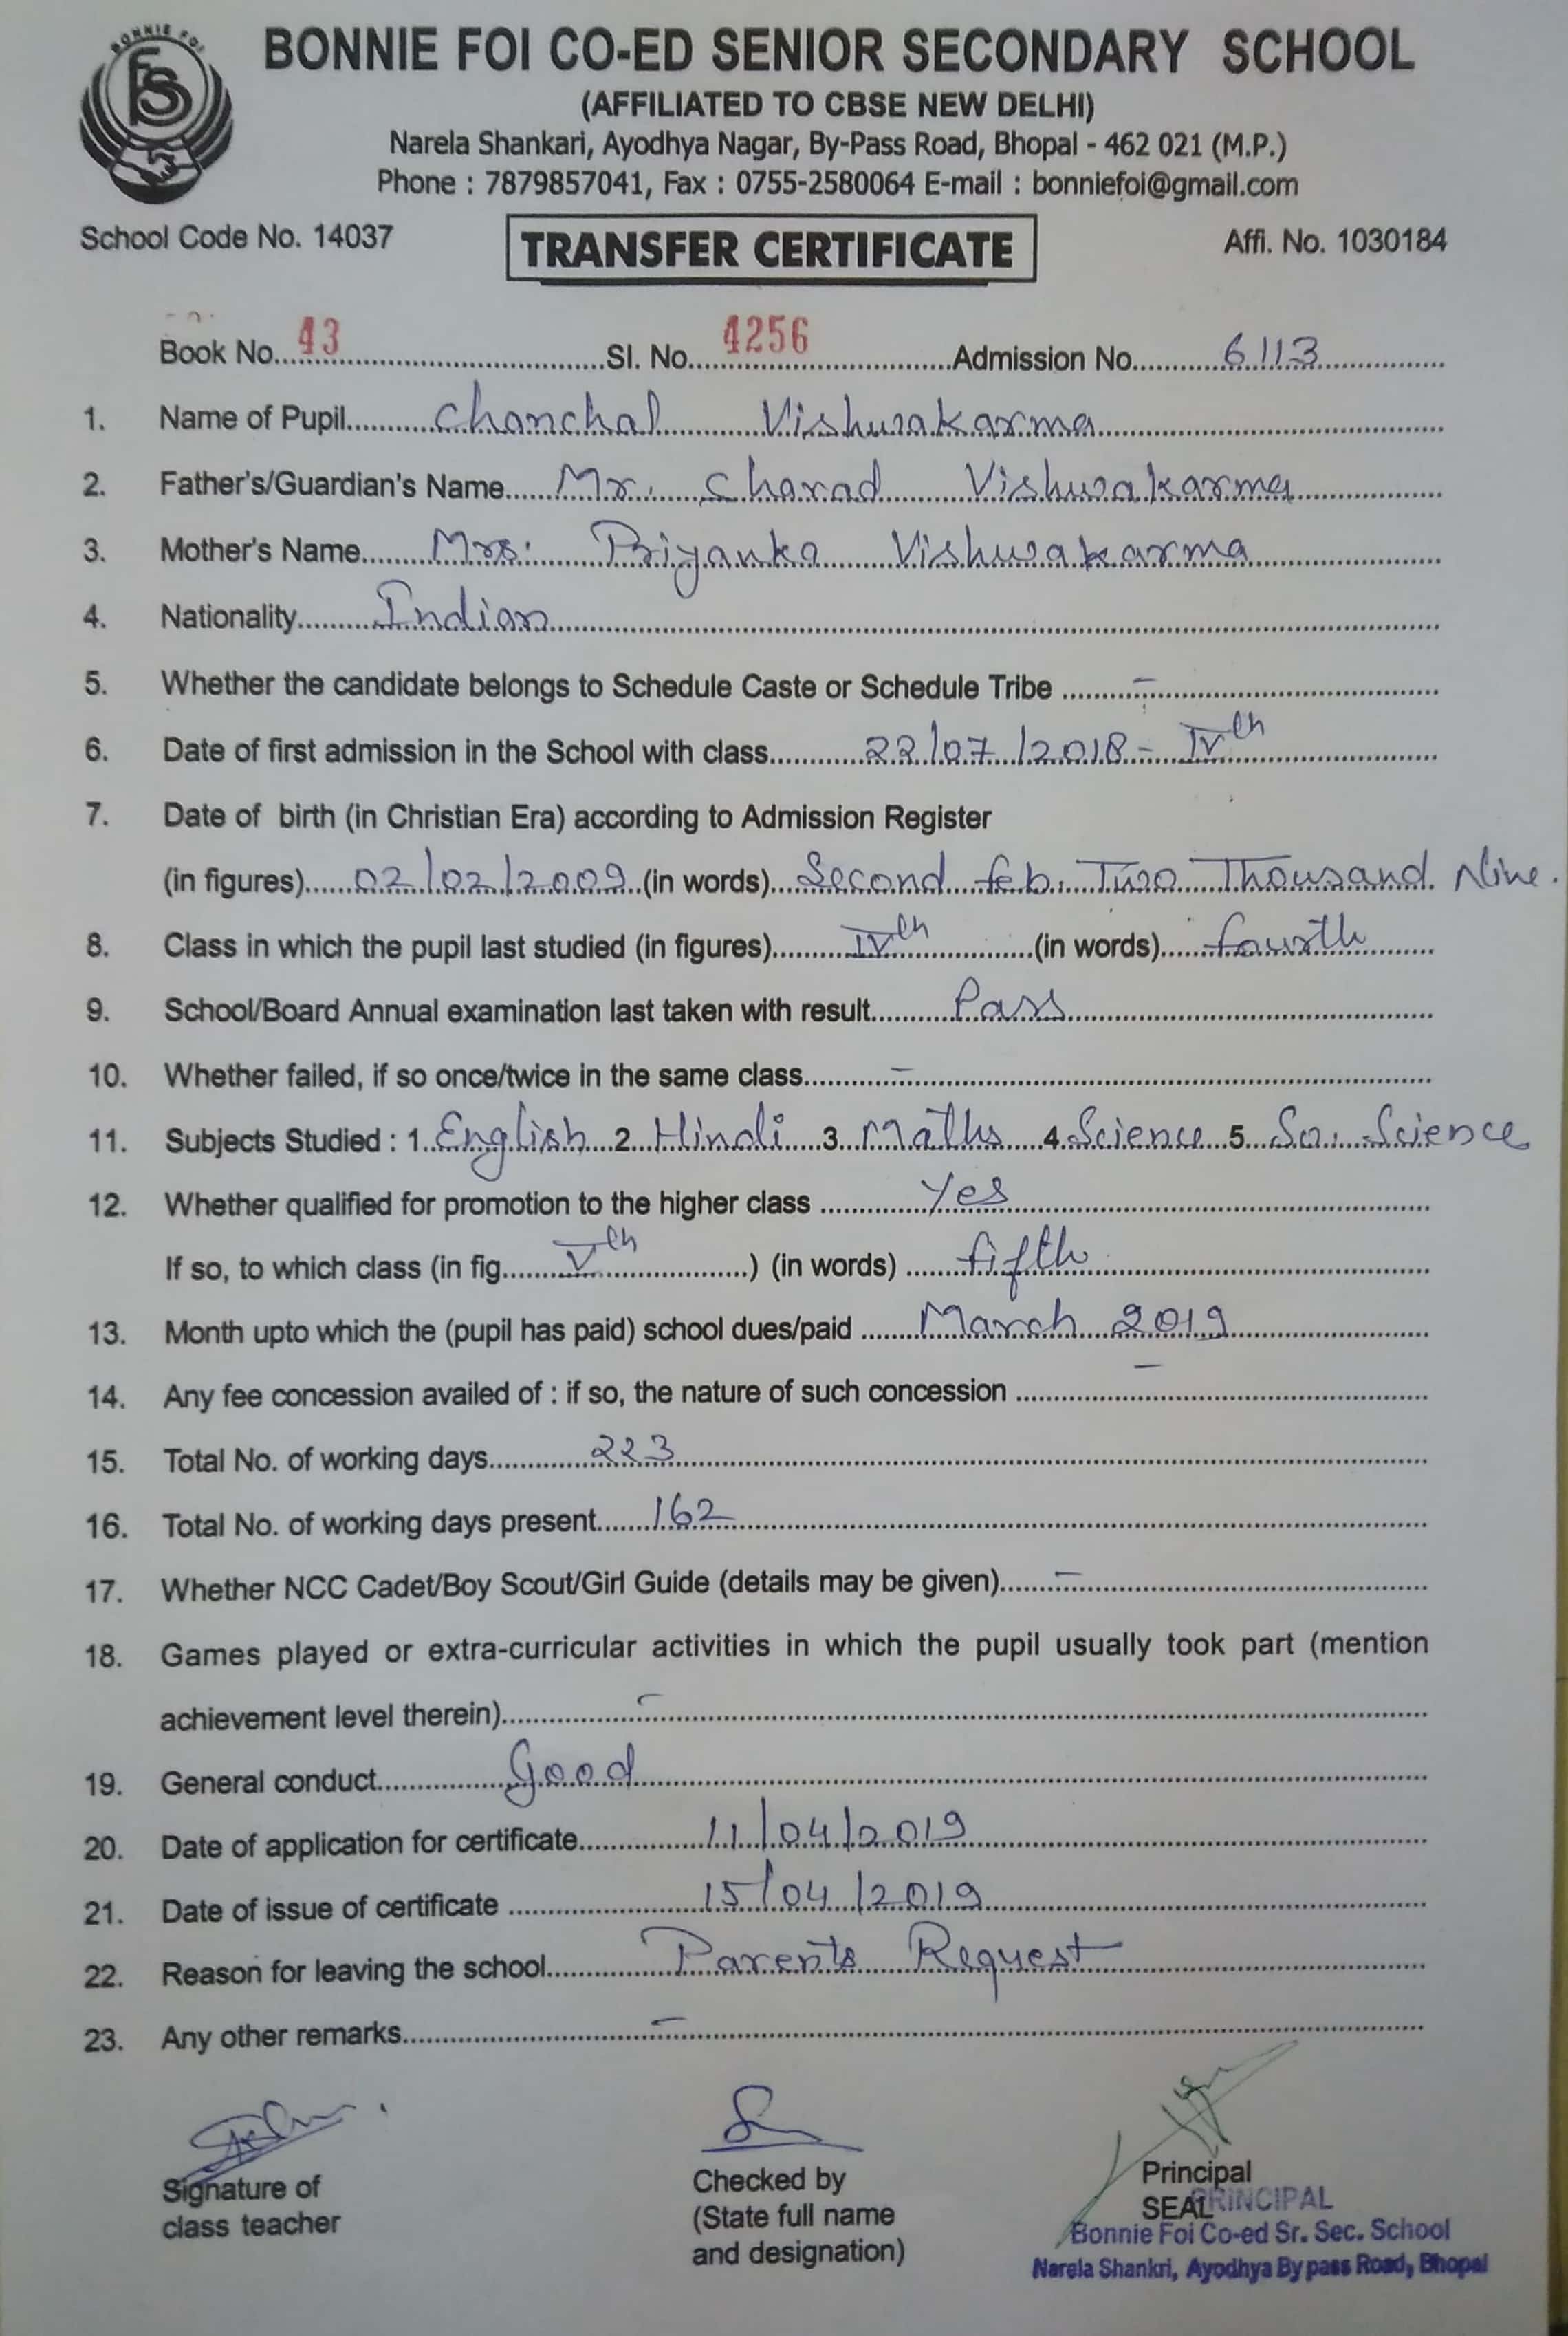 BONNIE FOI
BONNIE FOI CO-ED SENIOR SECONDARY SCHOOL
(AFFILIATED TO CBSE NEW DELHI)
Narela Shankari, Ayodhya Nagar, By-Pass Road, Bhopal - 462 021 (M.P.)
Phone : 7879857041, Fax : 0755-2580064 E-mail : bonniefoi@gmail.com
School Code No. 14037 TRANSFER CERTIFICATE Affi. No. 1030184
Book No. 43 Sl. No. 4256 Admission No. 6113
1. Name of Pupil Chanchal Vishwakarma
2. Father's/Guardian's Name Mr. Sharad Vishwakarma
3. Mother's Name Mrs. Priyanka Vishwakarma
4. Nationality Indian
5. Whether the candidate belongs to Schedule Caste or Schedule Tribe -
6. Date of first admission in the School with class 22/07/2018 - IVth
7. Date of birth (in Christian Era) according to Admission Register
(in figures) 02/02/2009 (in words) Second feb. Two Thousand Nine.
8. Class in which the pupil last studied (in figures) IVth (in words) fourth
9. School/Board Annual examination last taken with result Pass
10. Whether failed, if so once/twice in the same class -
11. Subjects Studied : 1. English 2. Hindi 3. Maths 4. Science 5. So. Science
12. Whether qualified for promotion to the higher class Yes
If so, to which class (in fig. Vth ) (in words) fifth
13. Month upto which the (pupil has paid) school dues/paid March 2019
14. Any fee concession availed of : if so, the nature of such concession -
15. Total No. of working days 223
16. Total No. of working days present 162
17. Whether NCC Cadet/Boy Scout/Girl Guide (details may be given) -
18. Games played or extra-curricular activities in which the pupil usually took part (mention
achievement level therein) -
19. General conduct Good
20. Date of application for certificate 11/04/2019
21. Date of issue of certificate 15/04/2019
22. Reason for leaving the school Parents Request
23. Any other remarks -
Signature of
class teacher
Checked by
(State full name
and designation)
Principal
SEAL PRINCIPAL
Bonnie Foi Co-ed Sr. Sec. School
Narela Shankri, Ayodhya By pass Road, Bhopal